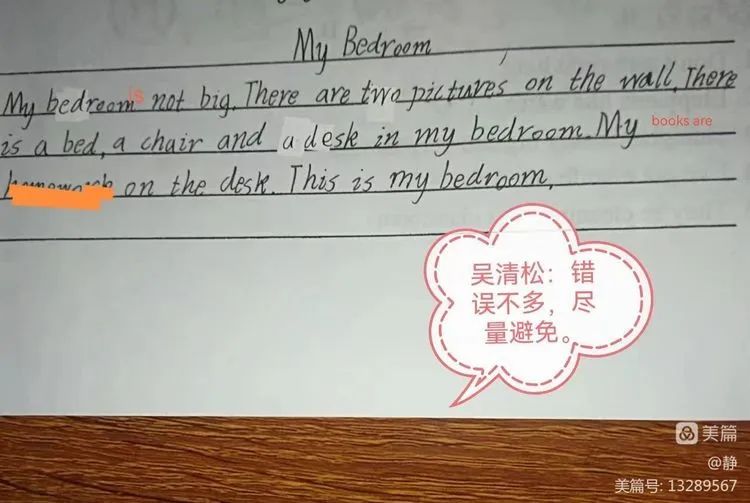 My Bedroom
My bedroom is not big. There are two pictures on the wall. There
is a bed, a chair and a desk in my bedroom. My books are
on the desk. This is my bedroom.
吴清松：错
误不多，尽
量避免。
美篇
@静
美篇号: 13289567